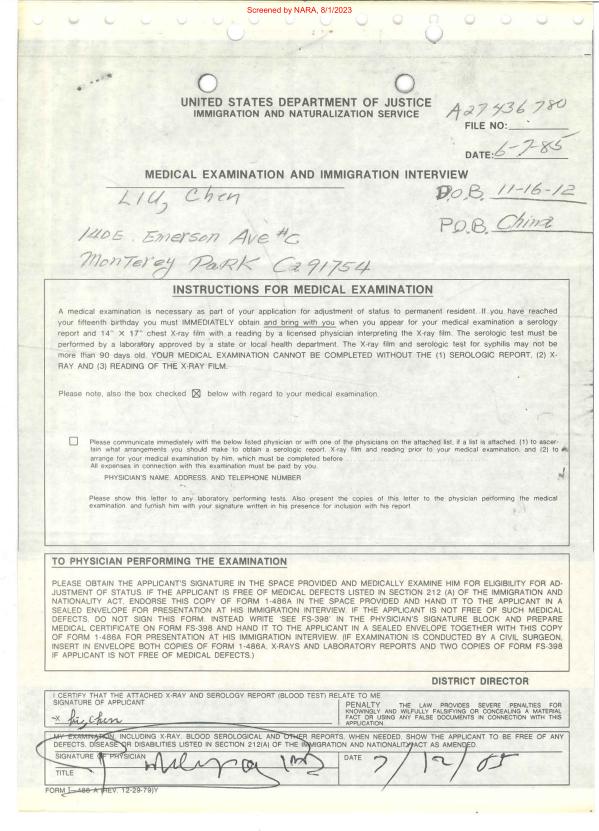 Screened by NARA, 8/1/2023
UNITED STATES DEPARTMENT OF JUSTICE
IMMIGRATION AND NATURALIZATION SERVICE
A27436780
FILE NO:
DATE: 6-7-85
MEDICAL EXAMINATION AND IMMIGRATION INTERVIEW
LIU, Chen
D.O.B. 11-16-12
P.O.B. China
140 E. Emerson Ave #C
Monterey Park Ca 91754
INSTRUCTIONS FOR MEDICAL EXAMINATION
A medical examination is necessary as part of your application for adjustment of status to permanent resident. If you have reached
your fifteenth birthday you must IMMEDIATELY obtain and bring with you when you appear for your medical examination a serology
report and 14" X 17" chest X-ray film with a reading by a licensed physician interpreting the X-ray film. The serologic test must be
performed by a laboratory approved by a state or local health department. The X-ray film and serologic test for syphilis may not be
more than 90 days old. YOUR MEDICAL EXAMINATION CANNOT BE COMPLETED WITHOUT THE (1) SEROLOGIC REPORT, (2) X-
RAY AND (3) READING OF THE X-RAY FILM.
Please note, also the box checked ☒ below with regard to your medical examination.
☐ Please communicate immediately with the below listed physician or with one of the physicians on the attached list, if a list is attached, (1) to ascer-
tain what arrangements you should make to obtain a serologic report, X-ray film and reading prior to your medical examination, and (2) to
arrange for your medical examination by him, which must be completed before
All expenses in connection with this examination must be paid by you.
PHYSICIAN'S NAME, ADDRESS, AND TELEPHONE NUMBER
Please show this letter to any laboratory performing tests. Also present the copies of this letter to the physician performing the medical
examination, and furnish him with your signature written in his presence for inclusion with his report.
TO PHYSICIAN PERFORMING THE EXAMINATION
PLEASE OBTAIN THE APPLICANT'S SIGNATURE IN THE SPACE PROVIDED AND MEDICALLY EXAMINE HIM FOR ELIGIBILITY FOR AD-
JUSTMENT OF STATUS. IF THE APPLICANT IS FREE OF MEDICAL DEFECTS LISTED IN SECTION 212 (A) OF THE IMMIGRATION AND
NATIONALITY ACT, ENDORSE THIS COPY OF FORM 1-486A IN THE SPACE PROVIDED AND HAND IT TO THE APPLICANT IN A
SEALED ENVELOPE FOR PRESENTATION AT HIS IMMIGRATION INTERVIEW. IF THE APPLICANT IS NOT FREE OF SUCH MEDICAL
DEFECTS, DO NOT SIGN THIS FORM. INSTEAD WRITE 'SEE FS-398' IN THE PHYSICIAN'S SIGNATURE BLOCK AND PREPARE
MEDICAL CERTIFICATE ON FORM FS-398 AND HAND IT TO THE APPLICANT IN A SEALED ENVELOPE TOGETHER WITH THIS COPY
OF FORM 1-486A FOR PRESENTATION AT HIS IMMIGRATION INTERVIEW. (IF EXAMINATION IS CONDUCTED BY A CIVIL SURGEON,
INSERT IN ENVELOPE BOTH COPIES OF FORM 1-486A, X-RAYS AND LABORATORY REPORTS AND TWO COPIES OF FORM FS-398
IF APPLICANT IS NOT FREE OF MEDICAL DEFECTS.)
DISTRICT DIRECTOR
I CERTIFY THAT THE ATTACHED X-RAY AND SEROLOGY REPORT (BLOOD TEST) RELATE TO ME
SIGNATURE OF APPLICANT
x Liu, Chen
PENALTY THE LAW PROVIDES SEVERE PENALTIES FOR
KNOWINGLY AND WILFULLY FALSIFYING OR CONCEALING A MATERIAL
FACT OR USING ANY FALSE DOCUMENTS IN CONNECTION WITH THIS
APPLICATION.
MY EXAMINATION, INCLUDING X-RAY, BLOOD SEROLOGICAL AND OTHER REPORTS, WHEN NEEDED, SHOW THE APPLICANT TO BE FREE OF ANY
DEFECTS, DISEASE OR DISABILITIES LISTED IN SECTION 212(A) OF THE IMMIGRATION AND NATIONALITY ACT AS AMENDED.
SIGNATURE OF PHYSICIAN
DATE 7/12/85
TITLE
FORM I-486 A (REV. 12-29-79)Y